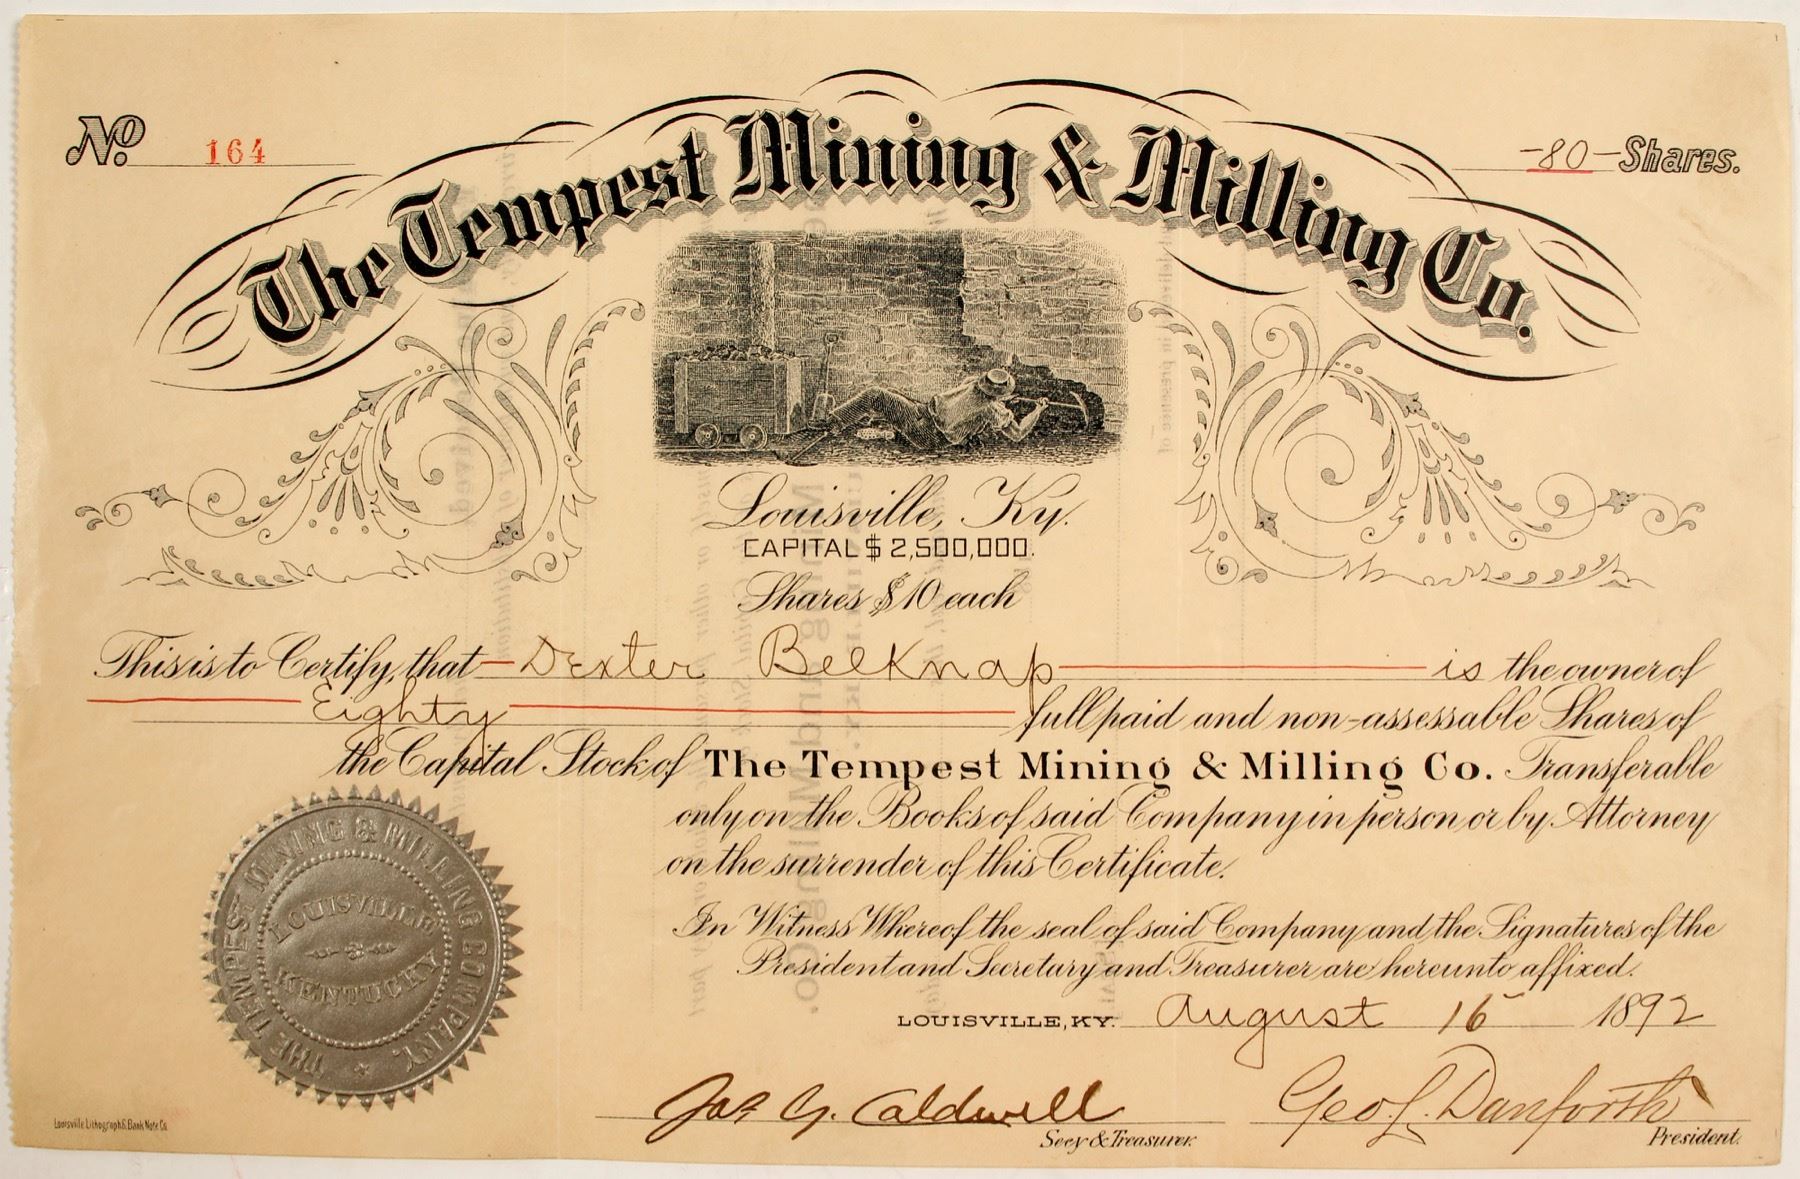 No. 164
-80- Shares.
The Tempest Mining & Milling Co.
Louisville, Ky.
CAPITAL $ 2,500,000.
Shares $10 each
This is to Certify, that Dexter Belknap is the owner of
Eighty full paid and non-assessable Shares of
the Capital Stock of The Tempest Mining & Milling Co. Transferable
only on the Books of said Company in person or by Attorney
on the surrender of this Certificate.
In Witness Whereof the seal of said Company and the Signatures of the
President and Secretary and Treasurer are hereunto affixed.
LOUISVILLE, KY. August 16 1892
THE TEMPEST MINING & MILLING COMPANY.
LOUISVILLE
KENTUCKY
Jas. G. Caldwell
Secy & Treasurer.
Geo. L. Danforth
President.
Louisville Lithograph & Bank Note Co.